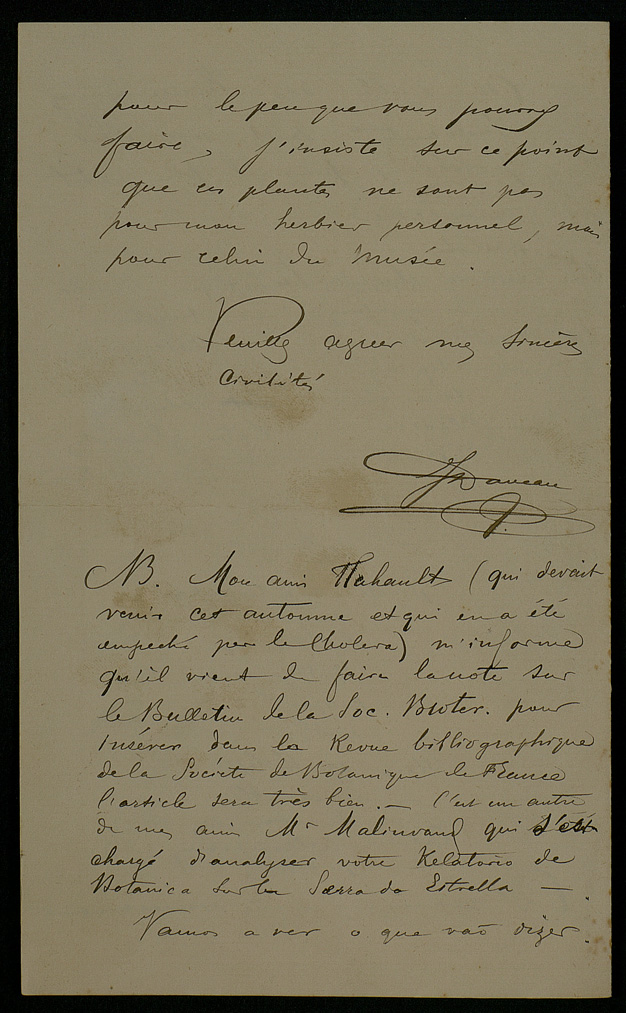 pour le peu que vous pourrez
faire, j'insiste sur ce point
que ces plantes ne sont pas
pour mon herbier personnel, mais
pour celui du Musée.
Veuillez agréer mes sincères
civilités
JDaveau
NB. Mon ami Flahault (qui devait
venir cet automne et qui en a été
empeché par le Cholera) m'informe
qu'il vient de faire la note sur
le Bulletin de la Soc. Broter. pour
insérer dans la Revue bibliographique
de la Société de Botanique de France
l'article sera très bien. — C'est un autre
de mes amis Mr Malinvaud qui s'est
chargé d'analyser votre Relatorio de
Botanica sur la Serra da Estrella —.
Vamos a ver o que vaõ dizer.